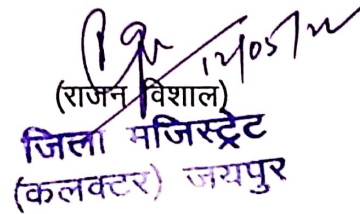 12/05/22
(राजन विशाल)
जिला मजिस्ट्रेट
(कलक्टर) जयपुर